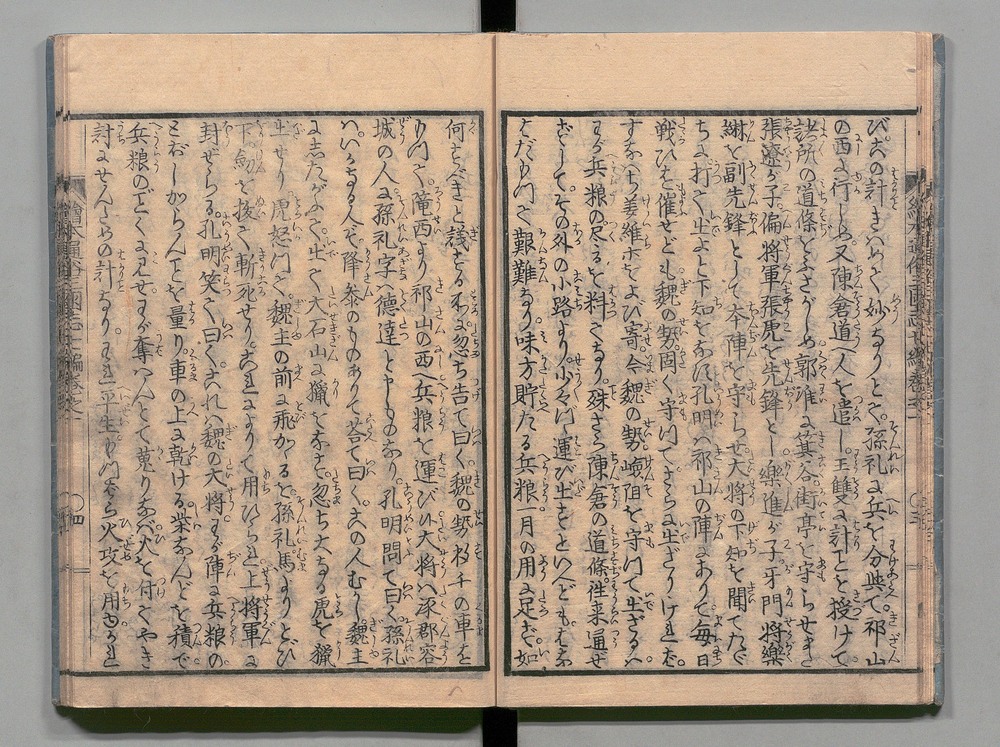 び。此の計きはめて妙なりとて。孫礼に兵を分与て。祁山
の西に行しめ。又陳倉道へ人を遣し。王雙に計ことを授けて
諸所の道條をふさがしめ。郭淮に箕谷街亭を守らせ。また
張遼が子偏将軍張虎を先鋒とし。樂進が子牙門将樂
綝を副先鋒として。本陣を守らせ。大将の下知を聞て。たゞ
ちに打て出よと下知をなす。孔明は祁山の陣にありて。毎日
戦ひを催せども。魏の勢固く守りて。さらに出ざりければ。
すなはち姜維をよび寄。今魏の勢嶮岨を守りて出ざるは。
わが兵粮の尽るを料てなり。殊さら陳倉の道條往来通ぜ
ずして。その外の小路より。小々づゝ運び出すといへども。はな
はだもつて艱難なり。味方貯たる兵粮一月の用に足ず。如
何すべきと議する所に。忽ち告て曰く。魏の勢数千の車を
もつて。隴西より祁山の西へ兵粮を運び候。大将は涿郡容
城の人に孫礼字は徳達と申ものなり。孔明問て曰く。孫礼
はいかなる人ぞ。降参のものありて答て曰く。此の人むかし魏主
にしたがふて。出て大石山に獵をなす。忽ち大なる虎を獵
出せり。虎怒つて。魏主の前に飛かゝるを。孫礼馬よりとび
下。劔を抜て斬死せり。これによりて用ひられ。上将軍に
封ぜらる。孔明笑て曰く。これは魏の大将。わが陣に兵粮の
とぼしからんことを量り。車の上に乾ける柴なんどを積で
兵粮のごとくに見せ。わが奪はんとて蒐りなば。火を付てやき
討にせんためのはかりことなり。われ平生もつはら火攻を用ゆるに
繪本通俗三國志七編巻之一
○四